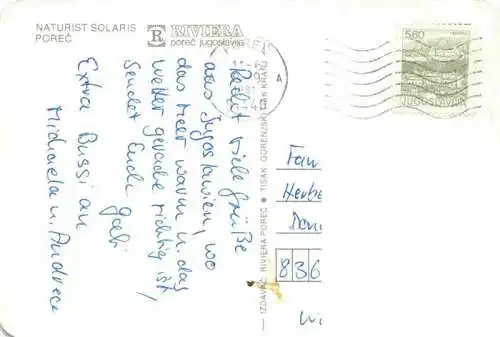 NATURIST SOLARIS
POREČ
R RIVIERA
poreč jugoslavija
5,60
JUGOSLAVIJA
Recht viele Grüße
aus Jugoslawien, wo
das Meer warm u. das
Wetter gerade richtig ist,
sendet Euch Gabi
Extra Bussi an
Michaela u. Andrea
IZDAVAČ RIVIERA POREČ ● TISAK GORENJSKI TISK KRANJ
Fam
Herbe
8 3 6